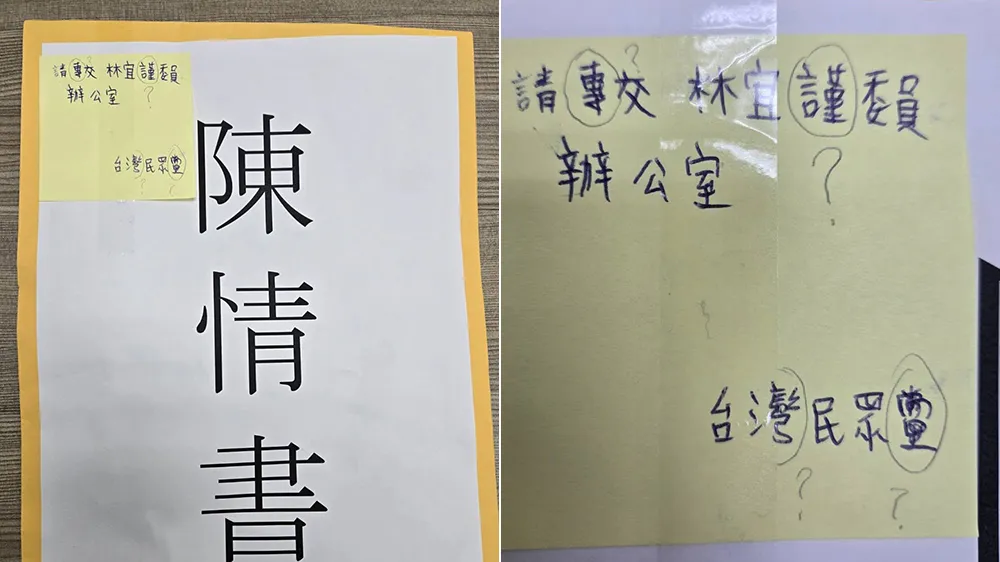 ?
請專交 林宜謹委員
辦公室 ?
台灣民眾黨
? ?
陳
情
書
?
請專交 林宜謹委員
辦公室 ?
台灣民眾黨
? ?